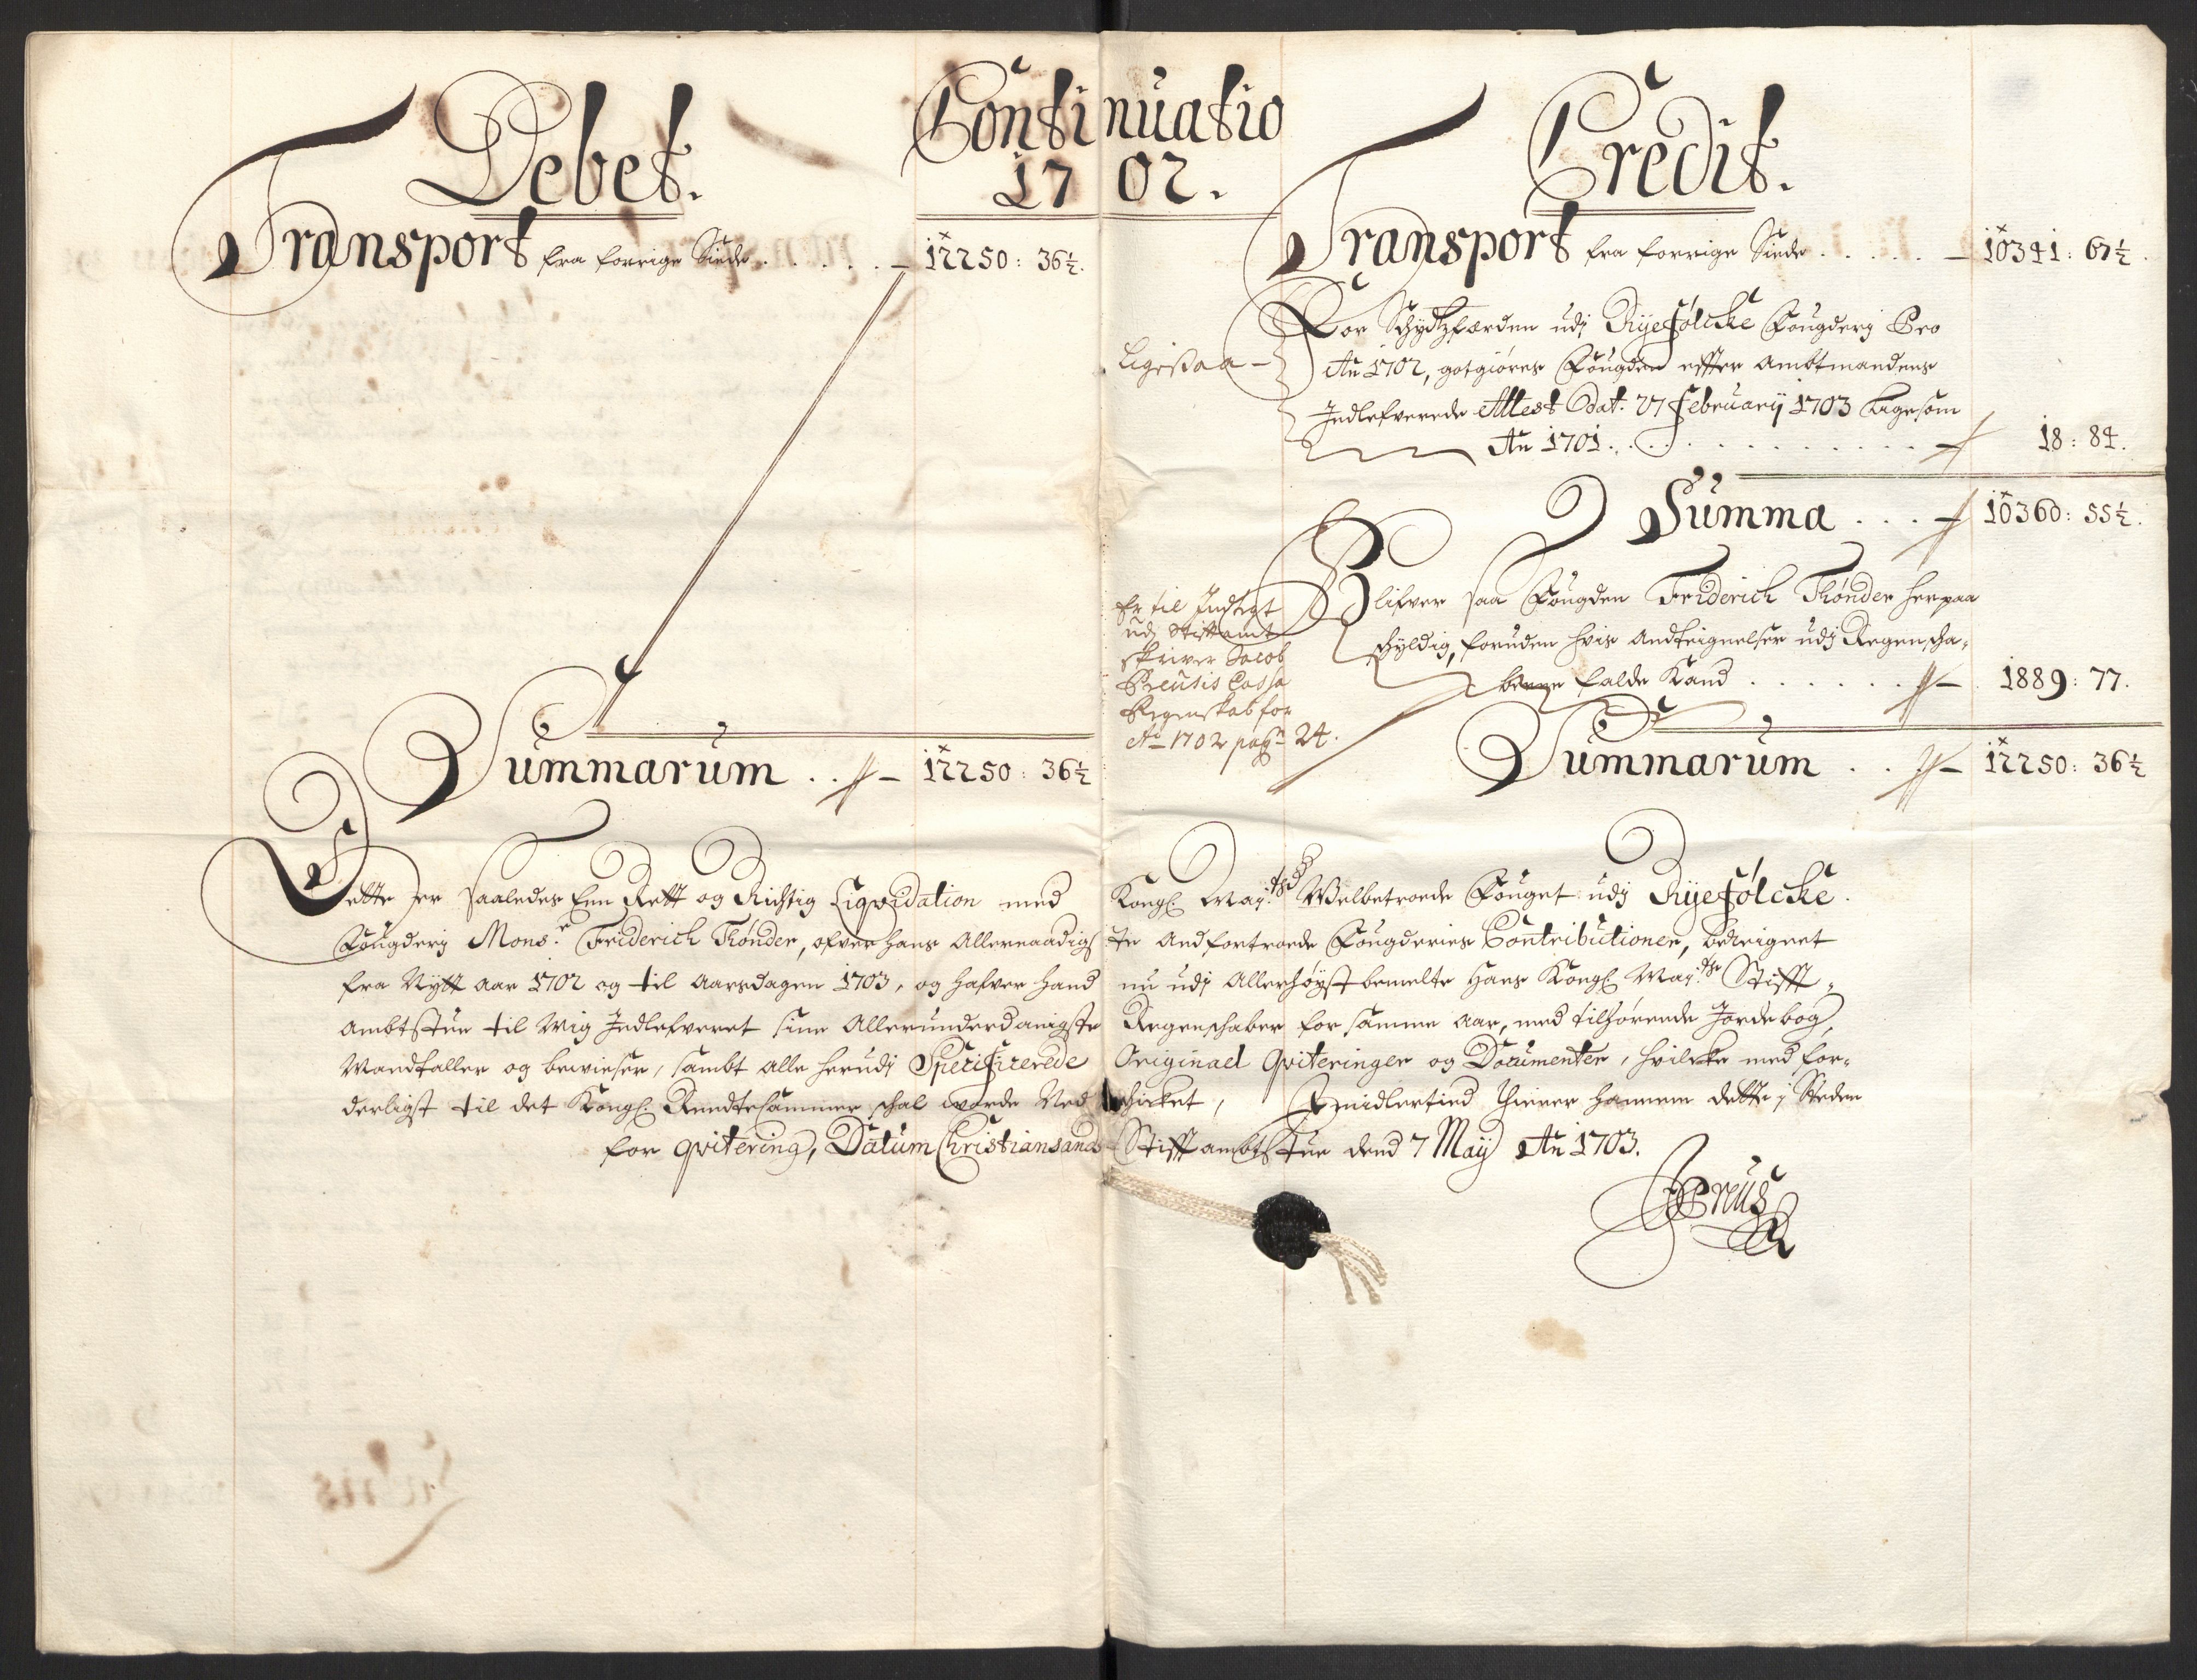 Continuatio
1702.
Debet.
Transport fra forrige Siude . . . . . — 12250: 36½.
Summarum . . — 12250: 36½
Credit.
Transport fra forrige Siude . . . . . — 10341: 67½.
Ligesaa —
For Schydtzferden udj Ryefølcke Fougderj Pro
An 1702, gotgiøres Fougden effter Ambtmandens
Indlefverede Attest dat. 27 februarij 1703 Ligesom
An 1701. . . . . . . . . — 18: 84.
Summa . . . — 10360: 55½.
Er til Indtegt
udj Stiftamt
skriver Jacob
Preutis Cassa
Regenskab for
Ao 1702 pag 24.
Blifver saa Fougden Friderich Thønder herpaa
schyldig, foruden hvis Andteignelser udj Regenscha-
berne falde Kand . . . . . . — 1889: 77.
Summarum . . — 12250: 36½
Dette er saaledes Een Rett og Richtig Liqvidation med Kongl May:ts Welbetroede Fouget udj Ryefølcke
Fougderj Mons.r Friderich Thønder, ofver hans Allernaadigste Andfortroede Fougderies Contributioner, bereignet
fra Nytt Aar 1702 og til Aarsdagen 1703, og hafver hand nu udj Allerhøyst bemelte Hans Kongl May:ts Stifft-
ambtstue til Mig Indlefveret sine Allerunderdanigste Regenschaber for samme Aar, med tilhørende Jordebog,
Mandtaller og beviser, sambt alle herudj Specificerede Original Qviteringer og Documenter, hvilcke med for-
derligst til det Kongl. Rendtekammer schal worde Nedschicket, Emidlertied thiener hannem dette i Steden
for Qvitering, Datum Christiansands Stifftambtstue dend 7 Maij An 1703.
JPreüs